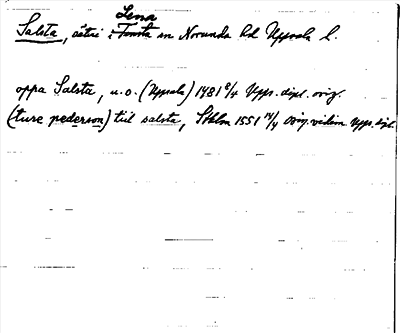 Lena
Salsta, sätri i Tensta sn Norunda hd Uppsala l.
oppa Salsta, u.o. (Uppsala) 1481 8/4 Upps. dipl. orig.
(ture pederson) till salsta, Sthlm 1551 14/4 orig. vidim Upps. dipl.